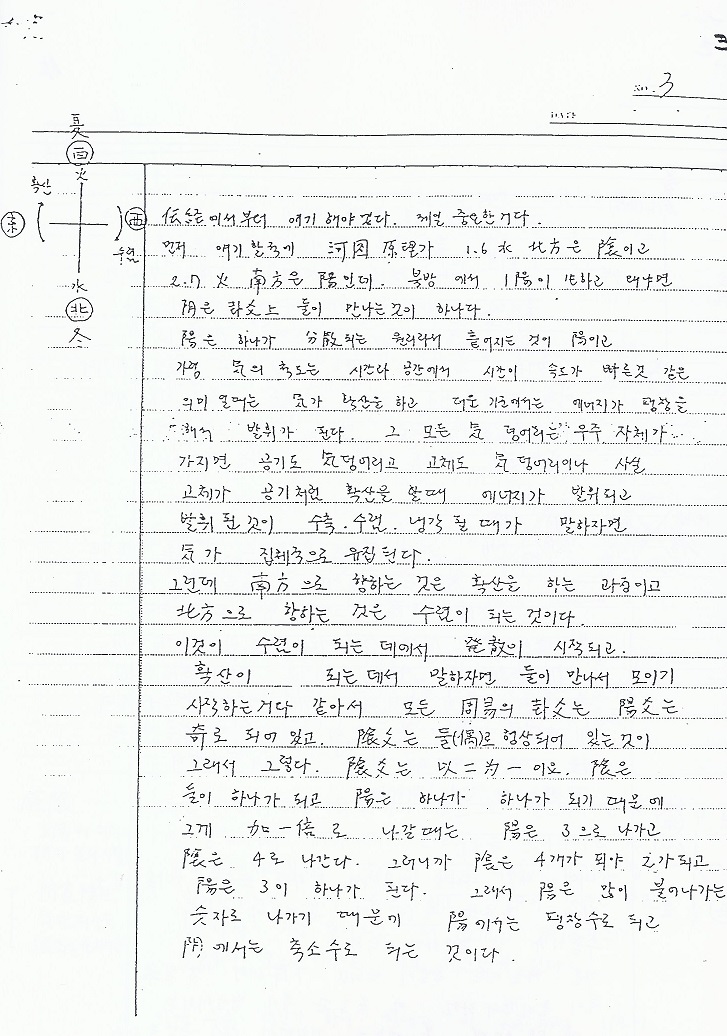 3
No. 3
夏
南
火
확산
東
西
수렴
水
北
冬
伝経에서부터 얘기 해야겠다. 제일 중요한거다.
먼저 얘기 할적에 河図 原理가 1.6 水 北方은 陰이고
2.7 火 南方은 陽인데. 북방에서 1陽이 生하고 왜냐면
阴은 이 만나는것이 하나다.
陽은 하나가 分散되는 원리라서 흩어지는 것이 陽이고
가령 気의 척도는 시간과 공간에서 시간이 속도가 빠른것 같은
의미 열매는 気가 확산을 하고 더운 기운에서는 에너지가 팽창을
해서 발휘가 된다. 그 모든 気 덩어리는 우주 자체가
가지면 공기도 気덩어리고 고체도 気 덩어리이나 사실
고체가 공기처럼 확산을 할때 에너지가 발휘되고
발휘 된것이 수축.수렴.냉각 될 때가 말하자면
気가 집체적으로 응집된다.
그런데 南方으로 향하는 것은 확산을 하는 과정이고
北方으로 향하는 것은 수렴이 되는 것이다.
이것이 수렴이 되는 데에서 發散이 시작되고.
확산이 되는 데서 말하자면 둘이 만나서 모이기
시작하는거다 같아서 모든 周易의 화爻는 陽爻는
奇로 되어 있고. 陰爻는 둘(偶)로 형상되어 있는것이
그래서 그렇다. 陰爻는 以二为一이요. 陰은
둘이 하나가 되고 陽은 하나가 하나가 되기 때문에
그게 加一倍로 나갈때는 陽은 3으로 나가고
陰은 4로 나간다. 그러니까 陰은 4개가 되야 2가되고
陽은 3이 하나가 된다. 그래서 陽은 많이 불어나가는
숫자로 나가기 때문에 陽에서는 팽창수로 되고
阴에서는 축소수로 되는 것이다.